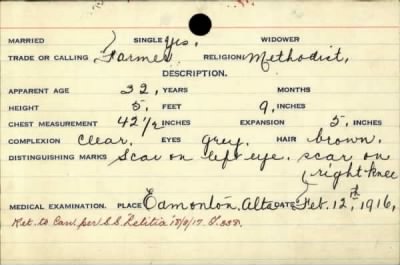 MARRIED SINGLE yes. WIDOWER
TRADE OR CALLING Farmer RELIGION Methodist.
DESCRIPTION.
APPARENT AGE 32, YEARS MONTHS
HEIGHT 5. FEET 9. INCHES
CHEST MEASUREMENT 42 1/2 INCHES EXPANSION 5. INCHES
COMPLEXION clear. EYES grey. HAIR brown.
DISTINGUISHING MARKS Scar on left eye. scar on
right knee
MEDICAL EXAMINATION. PLACE Edmonton, Alta DATE Feb. 12th, 1916,
Ret. to Can. per S.S. Letitia